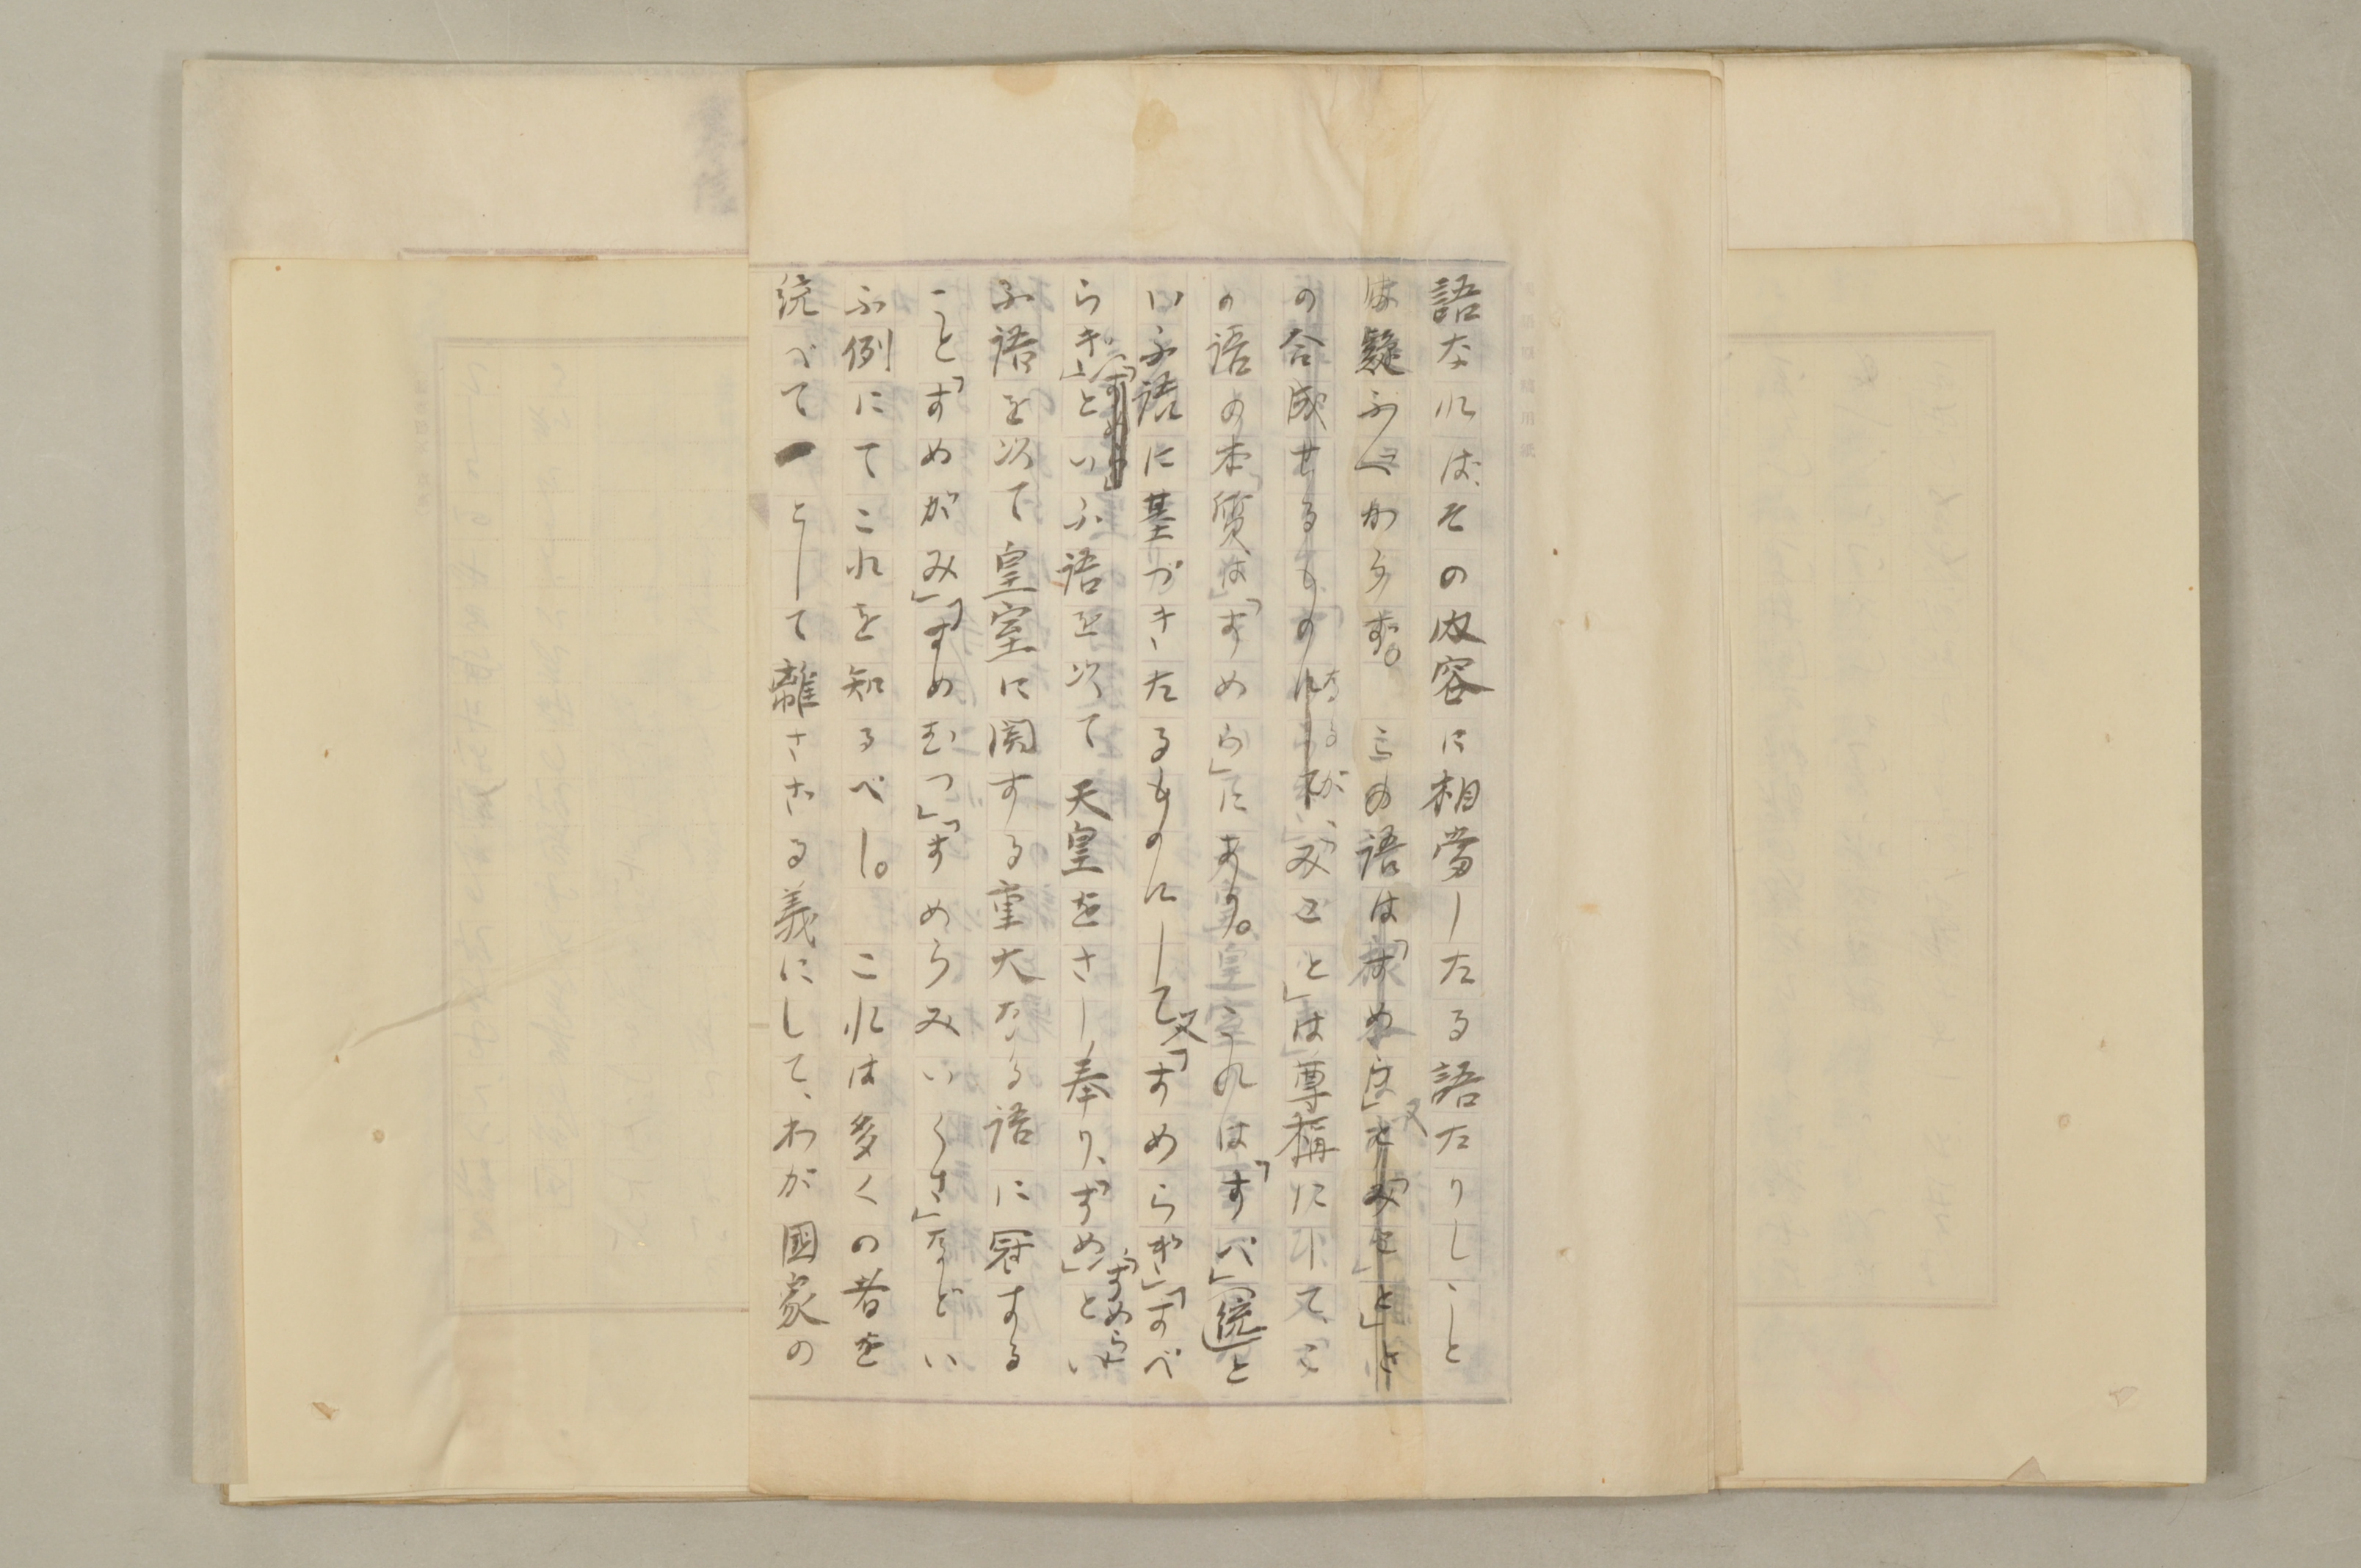 語なれば、その内容に相當したる語たりしこと
は疑ふべからず。この語は「すめら」と「みこと」と
の合成せるものなるが、「みこと」は尊稱にして、こ
の語の本質は「すめら」にあり。これは「すべ」(統)と
いふ語に基づきたるものにして又「すめらぎ」「すべ
らき」といふ語を以て天皇をさし奉り、「すめ」「すめら」とい
ふ語を以て皇室に関する重大なる語に冠する
こと「すめがみ」「すめむつ」「すめらみいくさ」などい
ふ例にてこれを知るべし。これは多くの者を
統べて一として離さざる義にして、わが國家の